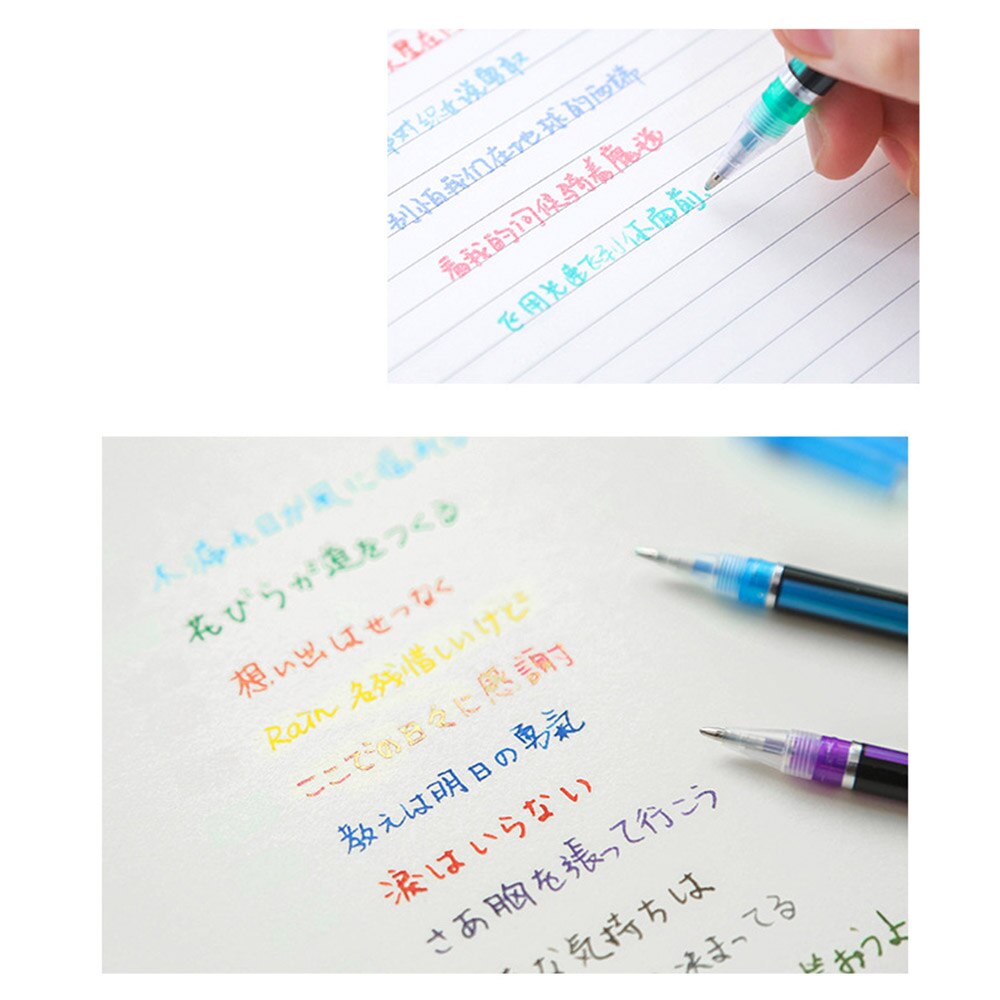 别怕我们在地球的两端
看我的问候骑着魔毯
飞用光速飞到你面前
花びらが道をつくる
想い出はせつなく
Rain 名残惜しいけど
ここでの日々に感謝
教えは明日の勇氣
涙はいらない
さあ胸を張って行こう
な気持ちは
決まってる
おうよ